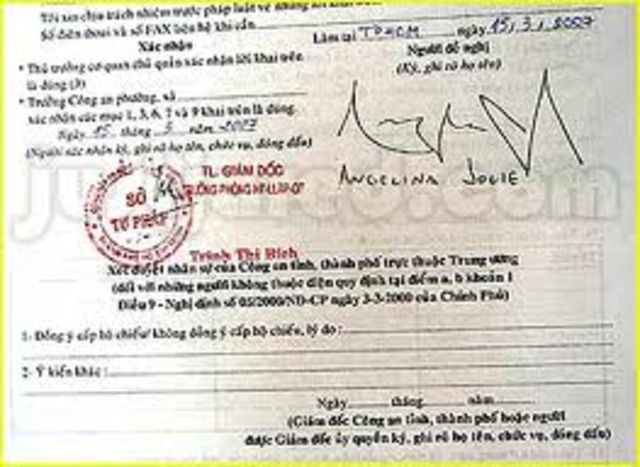 Tôi xin chịu trách nhiệm trước pháp luật về những lời khai trên.
Số điện thoại và số FAX liên hệ khi cần
Làm tại TPHCM ngày 15, 3, 2007
Xác nhận
Người đề nghị
(Ký, ghi rõ họ tên)
• Thủ trưởng cơ quan chủ quản xác nhận lời khai trên
là đúng (3)
• Trưởng Công an phường, xã
xác nhận các mục 1, 3, 6, 7 và 9 khai trên là đúng.
Ngày 15 tháng 3 năm 2007
(Người xác nhận ký, ghi rõ họ tên, chức vụ, đóng dấu)
TL. GIÁM ĐỐC
SỞ
TƯ PHÁP
ANGELINA JOLIE
justjared.com
Trịnh Thị Bích
Xét duyệt nhân sự của Công an tỉnh, thành phố trực thuộc Trung ương
(đối với những người không thuộc diện quy định tại điểm a, b khoản 1
Điều 9 - Nghị định số 05/2000/NĐ-CP ngày 3-3-2000 của Chính Phủ)
1- Đồng ý cấp hộ chiếu/ không đồng ý cấp hộ chiếu, lý do :
2- Ý kiến khác :
Ngày tháng năm
(Giám đốc Công an tỉnh, thành phố hoặc người
được Giám đốc ủy quyền ký, ghi rõ họ tên, chức vụ, đóng dấu)